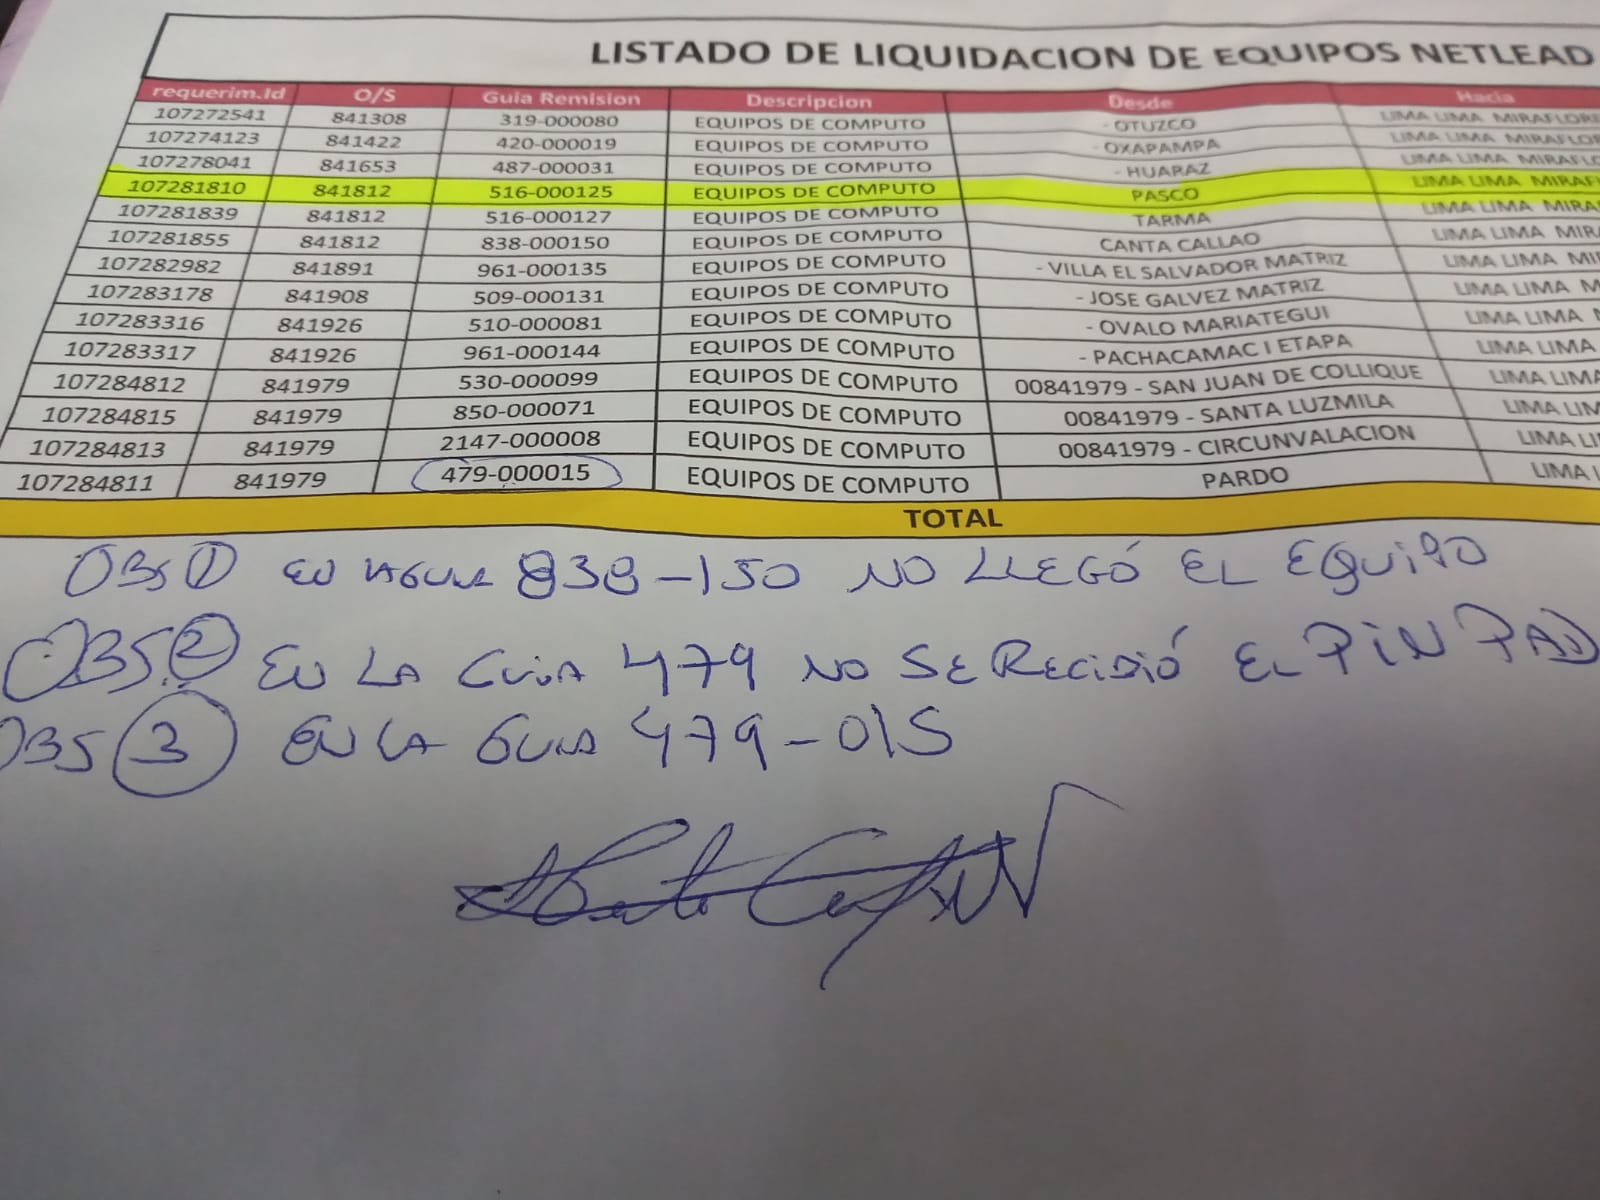 LISTADO DE LIQUIDACION DE EQUIPOS NETLEAD
requerim.Id O/S Guia Remision Descripcion Desde Hacia
107272541 841308 319-000080 EQUIPOS DE COMPUTO - OTUZCO LIMA LIMA MIRAFLORE
107274123 841422 420-000019 EQUIPOS DE COMPUTO - OXAPAMPA LIMA LIMA MIRAFLOR
107278041 841653 487-000031 EQUIPOS DE COMPUTO - HUARAZ LIMA LIMA MIRAFLO
107281810 841812 516-000125 EQUIPOS DE COMPUTO PASCO LIMA LIMA MIRAF
107281839 841812 516-000127 EQUIPOS DE COMPUTO TARMA LIMA LIMA MIRA
107281855 841812 838-000150 EQUIPOS DE COMPUTO CANTA CALLAO LIMA LIMA MIR
107282982 841891 961-000135 EQUIPOS DE COMPUTO - VILLA EL SALVADOR MATRIZ LIMA LIMA MI
107283178 841908 509-000131 EQUIPOS DE COMPUTO - JOSE GALVEZ MATRIZ LIMA LIMA M
107283316 841926 510-000081 EQUIPOS DE COMPUTO - OVALO MARIATEGUI LIMA LIMA
107283317 841926 961-000144 EQUIPOS DE COMPUTO - PACHACAMAC I ETAPA LIMA LIMA
107284812 841979 530-000099 EQUIPOS DE COMPUTO 00841979 - SAN JUAN DE COLLIQUE LIMA LIMA
107284815 841979 850-000071 EQUIPOS DE COMPUTO 00841979 - SANTA LUZMILA LIMA LIM
107284813 841979 2147-000008 EQUIPOS DE COMPUTO 00841979 - CIRCUNVALACION LIMA LI
107284811 841979 479-000015 EQUIPOS DE COMPUTO PARDO LIMA L
TOTAL
OBS 1 EN LA GUIA 838-150 NO LLEGÓ EL EQUIPO
OBS 2 EN LA GUIA 479 NO SE RECIBIÓ EL PIN PAD
OBS 3 EN LA GUIA 479-015